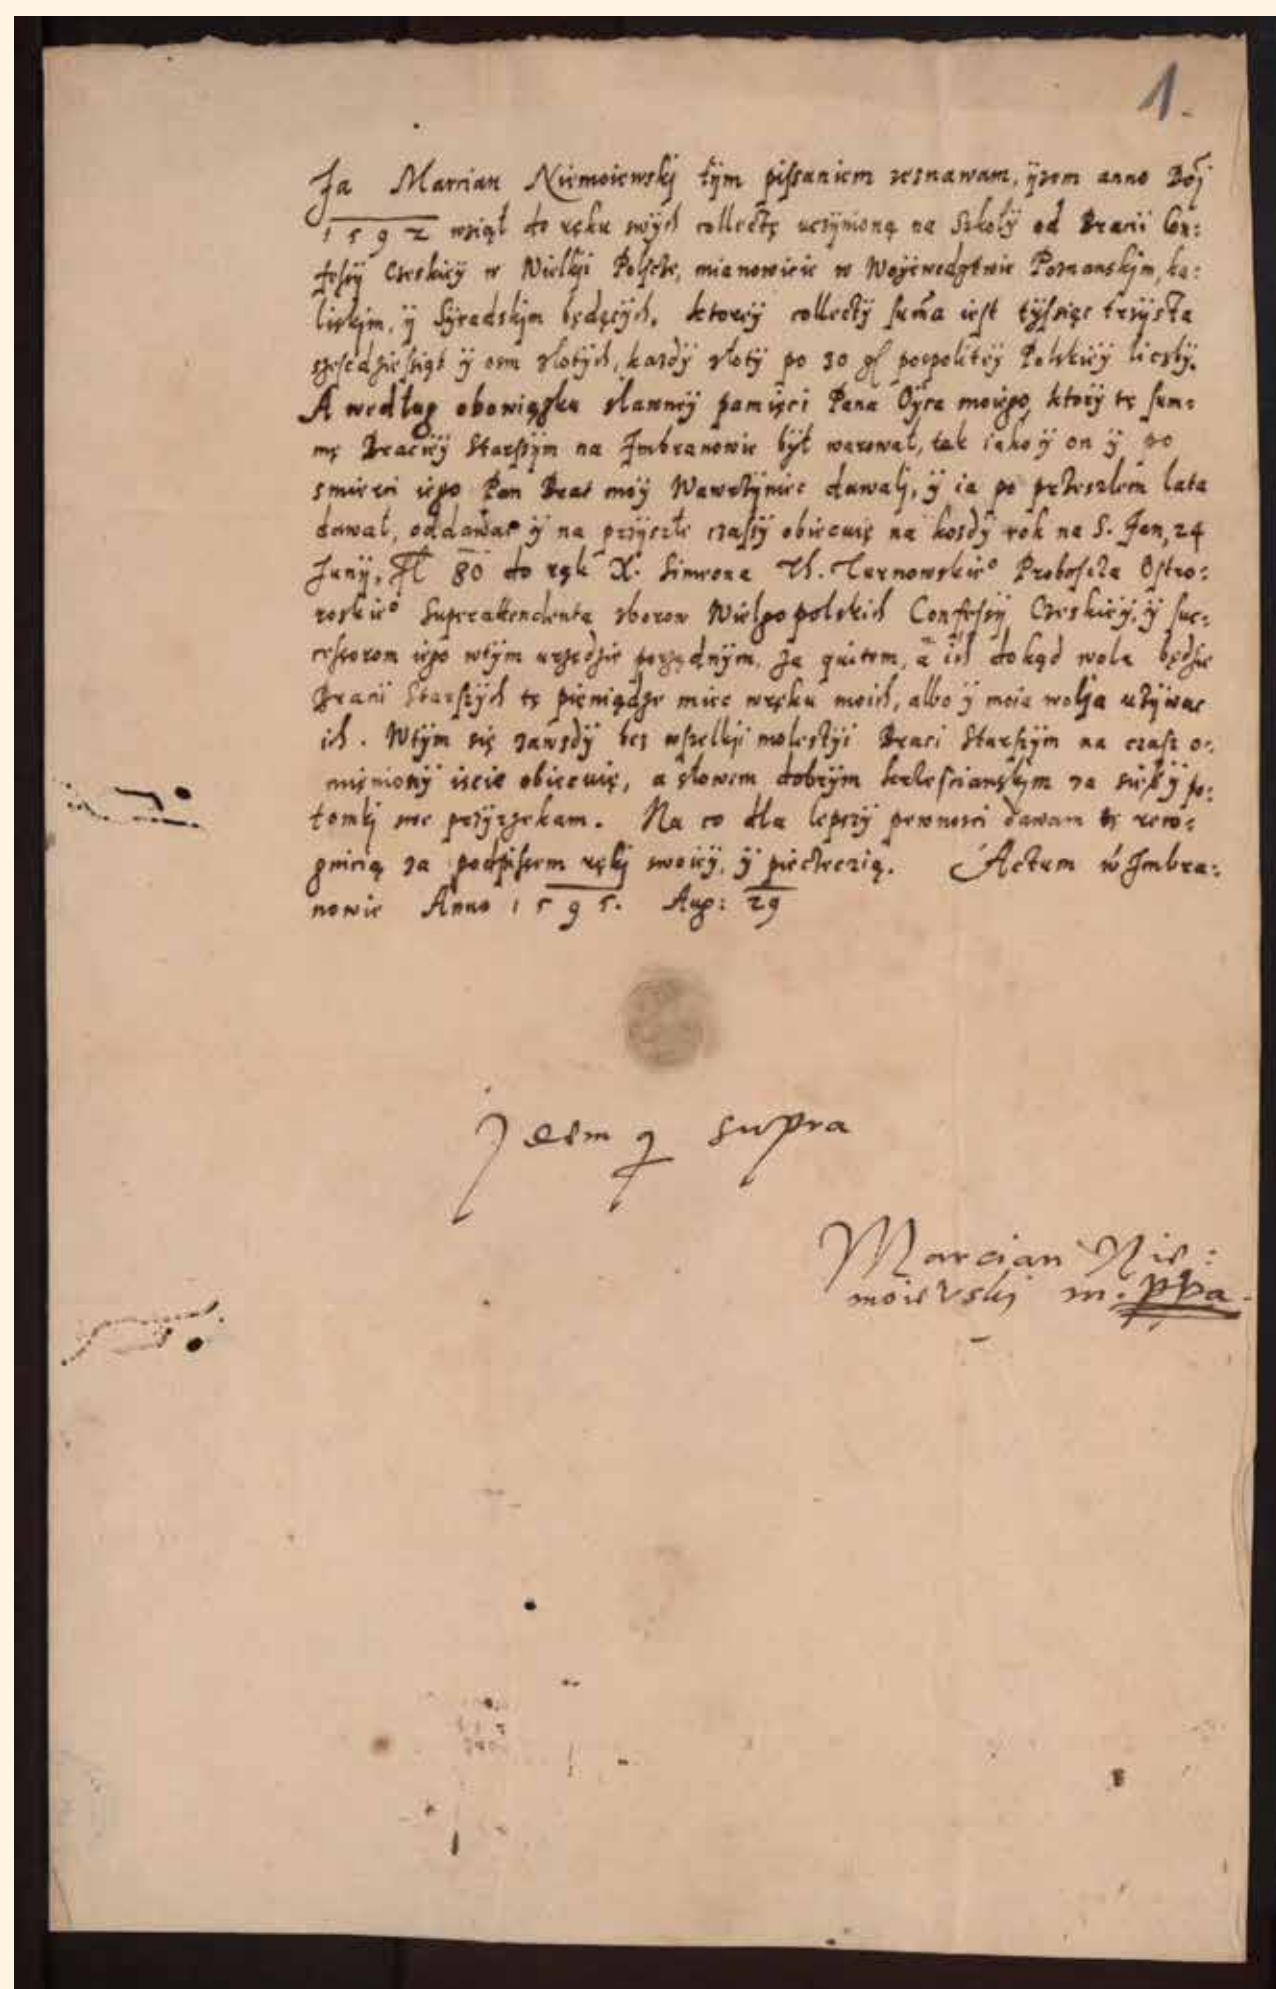 1.
Ja Marcian Niemoiewskj tÿm pissaniem zeznawam, ÿzem anno Bożÿ
1592 wziął do ręku swÿch collectę uczÿnioną na Szkołÿ od Bracii Con:
fesÿÿ Czeskieÿ w Wielkjÿ Polszcze, mianowicie w Woÿewodztwie Poznanskjm, ka:
liskjm, ÿ Sÿradskjm będącÿch, ktoreÿ collectÿ suma iest tÿsiąc trzÿsta
szescdziesiąt ÿ osm złotÿch, kazdÿ złotÿ po 30 gl pospoliteÿ Polskieÿ liczbÿ.
A według obowiązku sławneÿ pamięci Pana Oÿca moiego, ktorÿ tę sum:
mę Bracieÿ Starszÿm na Jmbranowie bÿł warował, tak iako ÿ on ÿ po
smierci iego Pan Brat moÿ Wawrzÿniec dawalj, ÿ ia po przeszłem lata
dawał, oddawać ÿ na przÿszłe czassÿ obiecuię na kozdÿ rok na S. Jan, 24
Junij, Fl 80 do rąk X. Simeona Th. Turnowskie⁰ Proboszcza Ostro:
roskie⁰ Superattendenta zborow Wielgopolskich Confesÿÿ Czeskieÿ, ÿ suc:
cessorom iego wtÿm urzędzie porządnÿm, za quitem, a iż dokąd wola będzie
Bracii Starszÿch tę pieniądze miec wręku moich, albo ÿ moia wolja uzÿwac
ich. Wtÿm się zawzdÿ bez wszelkjÿ molestÿÿ Braci Starszÿm na czass o:
mięnionÿ iscic obiecuię, a słowem dobrÿm krzescianskjm za się ÿ po:
tomkj swe przÿrzekam. Na co dla lepszÿ pewnosci dawam tę reco:
gnicią za podpissem rękj swoieÿ, ÿ pieczeczią. Actum w Jmbra:
nowie Anno 1595. Aug: 29
Jdem q supra
Marcian Nie:
moiewskj m. ppa.